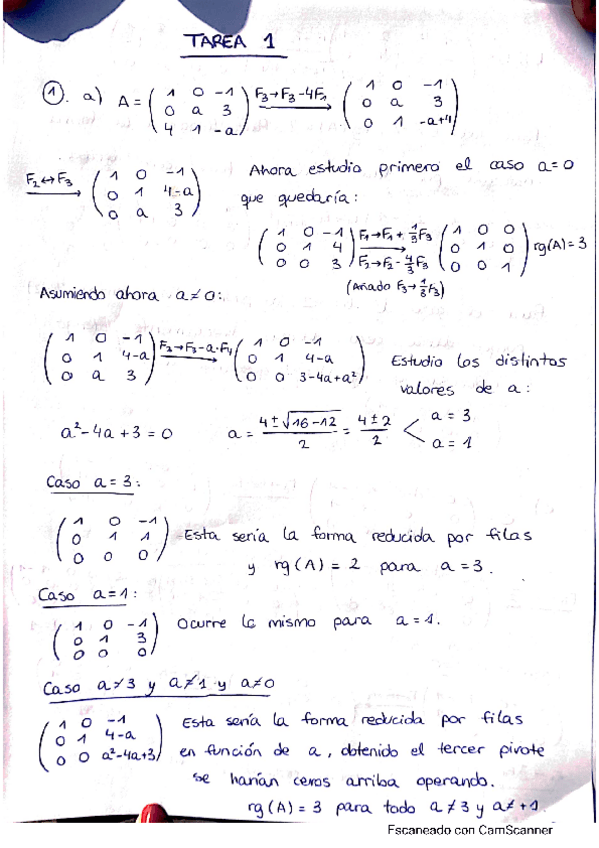 TAREA 1
①. a) A = ( 1 0 -1 / 0 a 3 / 4 1 -a ) F3→F3-4F1 ( 1 0 -1 / 0 a 3 / 0 1 -a+4 )
F2↔F3 ( 1 0 -1 / 0 1 4-a / 0 a 3 ) Ahora estudio primero el caso a=0
que quedaría:
( 1 0 -1 / 0 1 4 / 0 0 3 ) F1→F1+1/3F3 F2→F2-4/3F3 ( 1 0 0 / 0 1 0 / 0 0 1 ) rg(A)=3
(Añado F3→1/3F3)
Asumiendo ahora a≠0:
( 1 0 -1 / 0 1 4-a / 0 a 3 ) ( 1 0 -1 / 0 1 4-a / 0 0 3-4a+a² ) Estudio los distintos
valores de a:
a²-4a+3=0 a = (4±√16-12)/2 = (4±2)/2 < a=3 a=1
Caso a=3:
( 1 0 -1 / 0 1 1 / 0 0 0 ) Esta sería la forma reducida por filas
y rg(A) = 2 para a=3.
Caso a=1:
( 1 0 -1 / 0 1 3 / 0 0 0 ) Ocurre lo mismo para a=1.
Caso a≠3 y a≠1 y a≠0
( 1 0 -1 / 0 1 4-a / 0 0 a²-4a+3 ) Esta sería la forma reducida por filas
en función de a, obtenido el tercer pivote
se harían ceros arriba operando.
rg(A) = 3 para todo a≠3 y a≠+1.
Escaneado con CamScanner